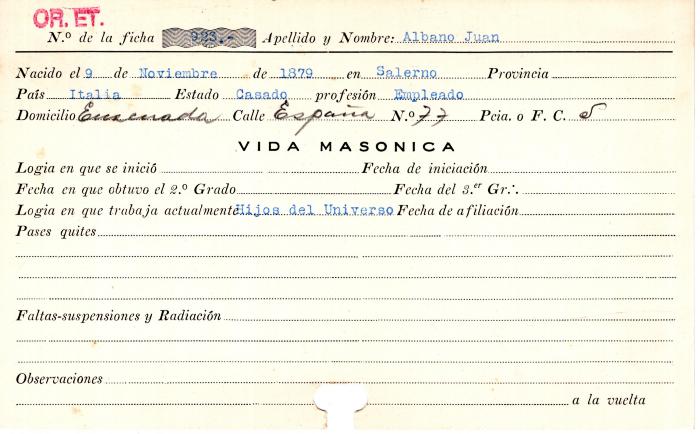 OR. ET.
N.º de la ficha 923.- Apellido y Nombre: Albano Juan
Nacido el 9 de Noviembre de 1879 en Salerno Provincia
País Italia Estado Casado profesión Empleado
Domicilio Ensenada Calle España N.º 77 Pcia. o F. C. S
VIDA MASONICA
Logia en que se inició Fecha de iniciación
Fecha en que obtuvo el 2.º Grado Fecha del 3.er Gr∴
Logia en que trabaja actualmente Hijos del Universo Fecha de afiliación
Pases quites
Faltas-suspensiones y Radiación
Observaciones
a la vuelta